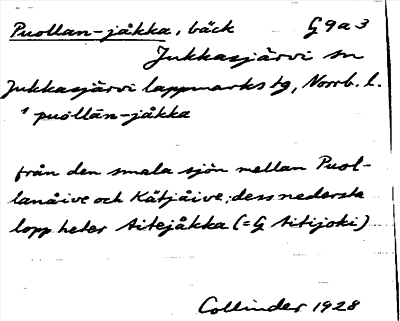 Puollan-jåkka, bäck G9a3
Jukkasjärvi sn
Jukkasjärvi lappmarks tg, Norrb. l.
puollān-jåkka
från den smala sjön mellan Puol-
lanåive och Kåtjåive; dess nedersta
lopp heter Aitejåkka (=G Aitijoki)
Collinder 1928